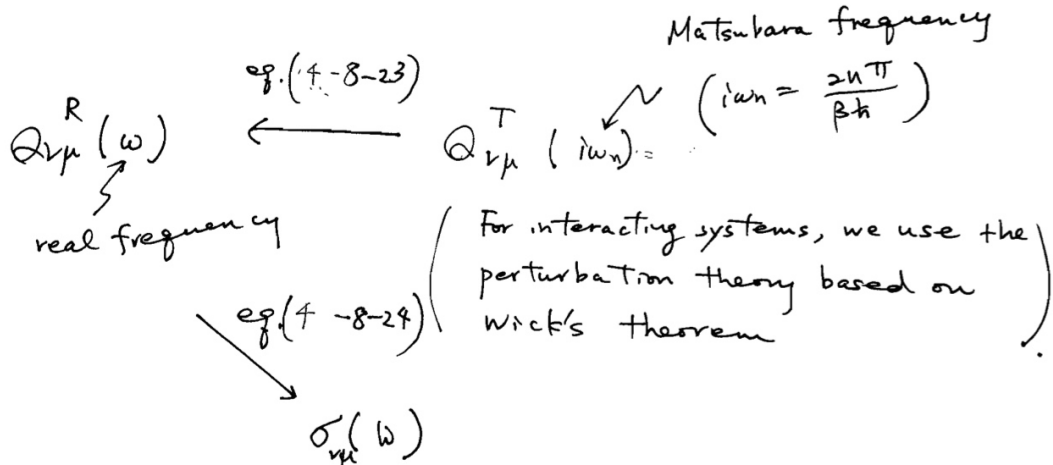 Matsubara frequency
eq.(4-8-23)
(iωn = 2nπ / βħ)
Q^R_νμ (ω) ← Q^T_νμ (iωn) =
real frequency
(For interacting systems, we use the
perturbation theory based on
Wick's theorem).
eq.(4-8-24)
σ_νμ(ω)